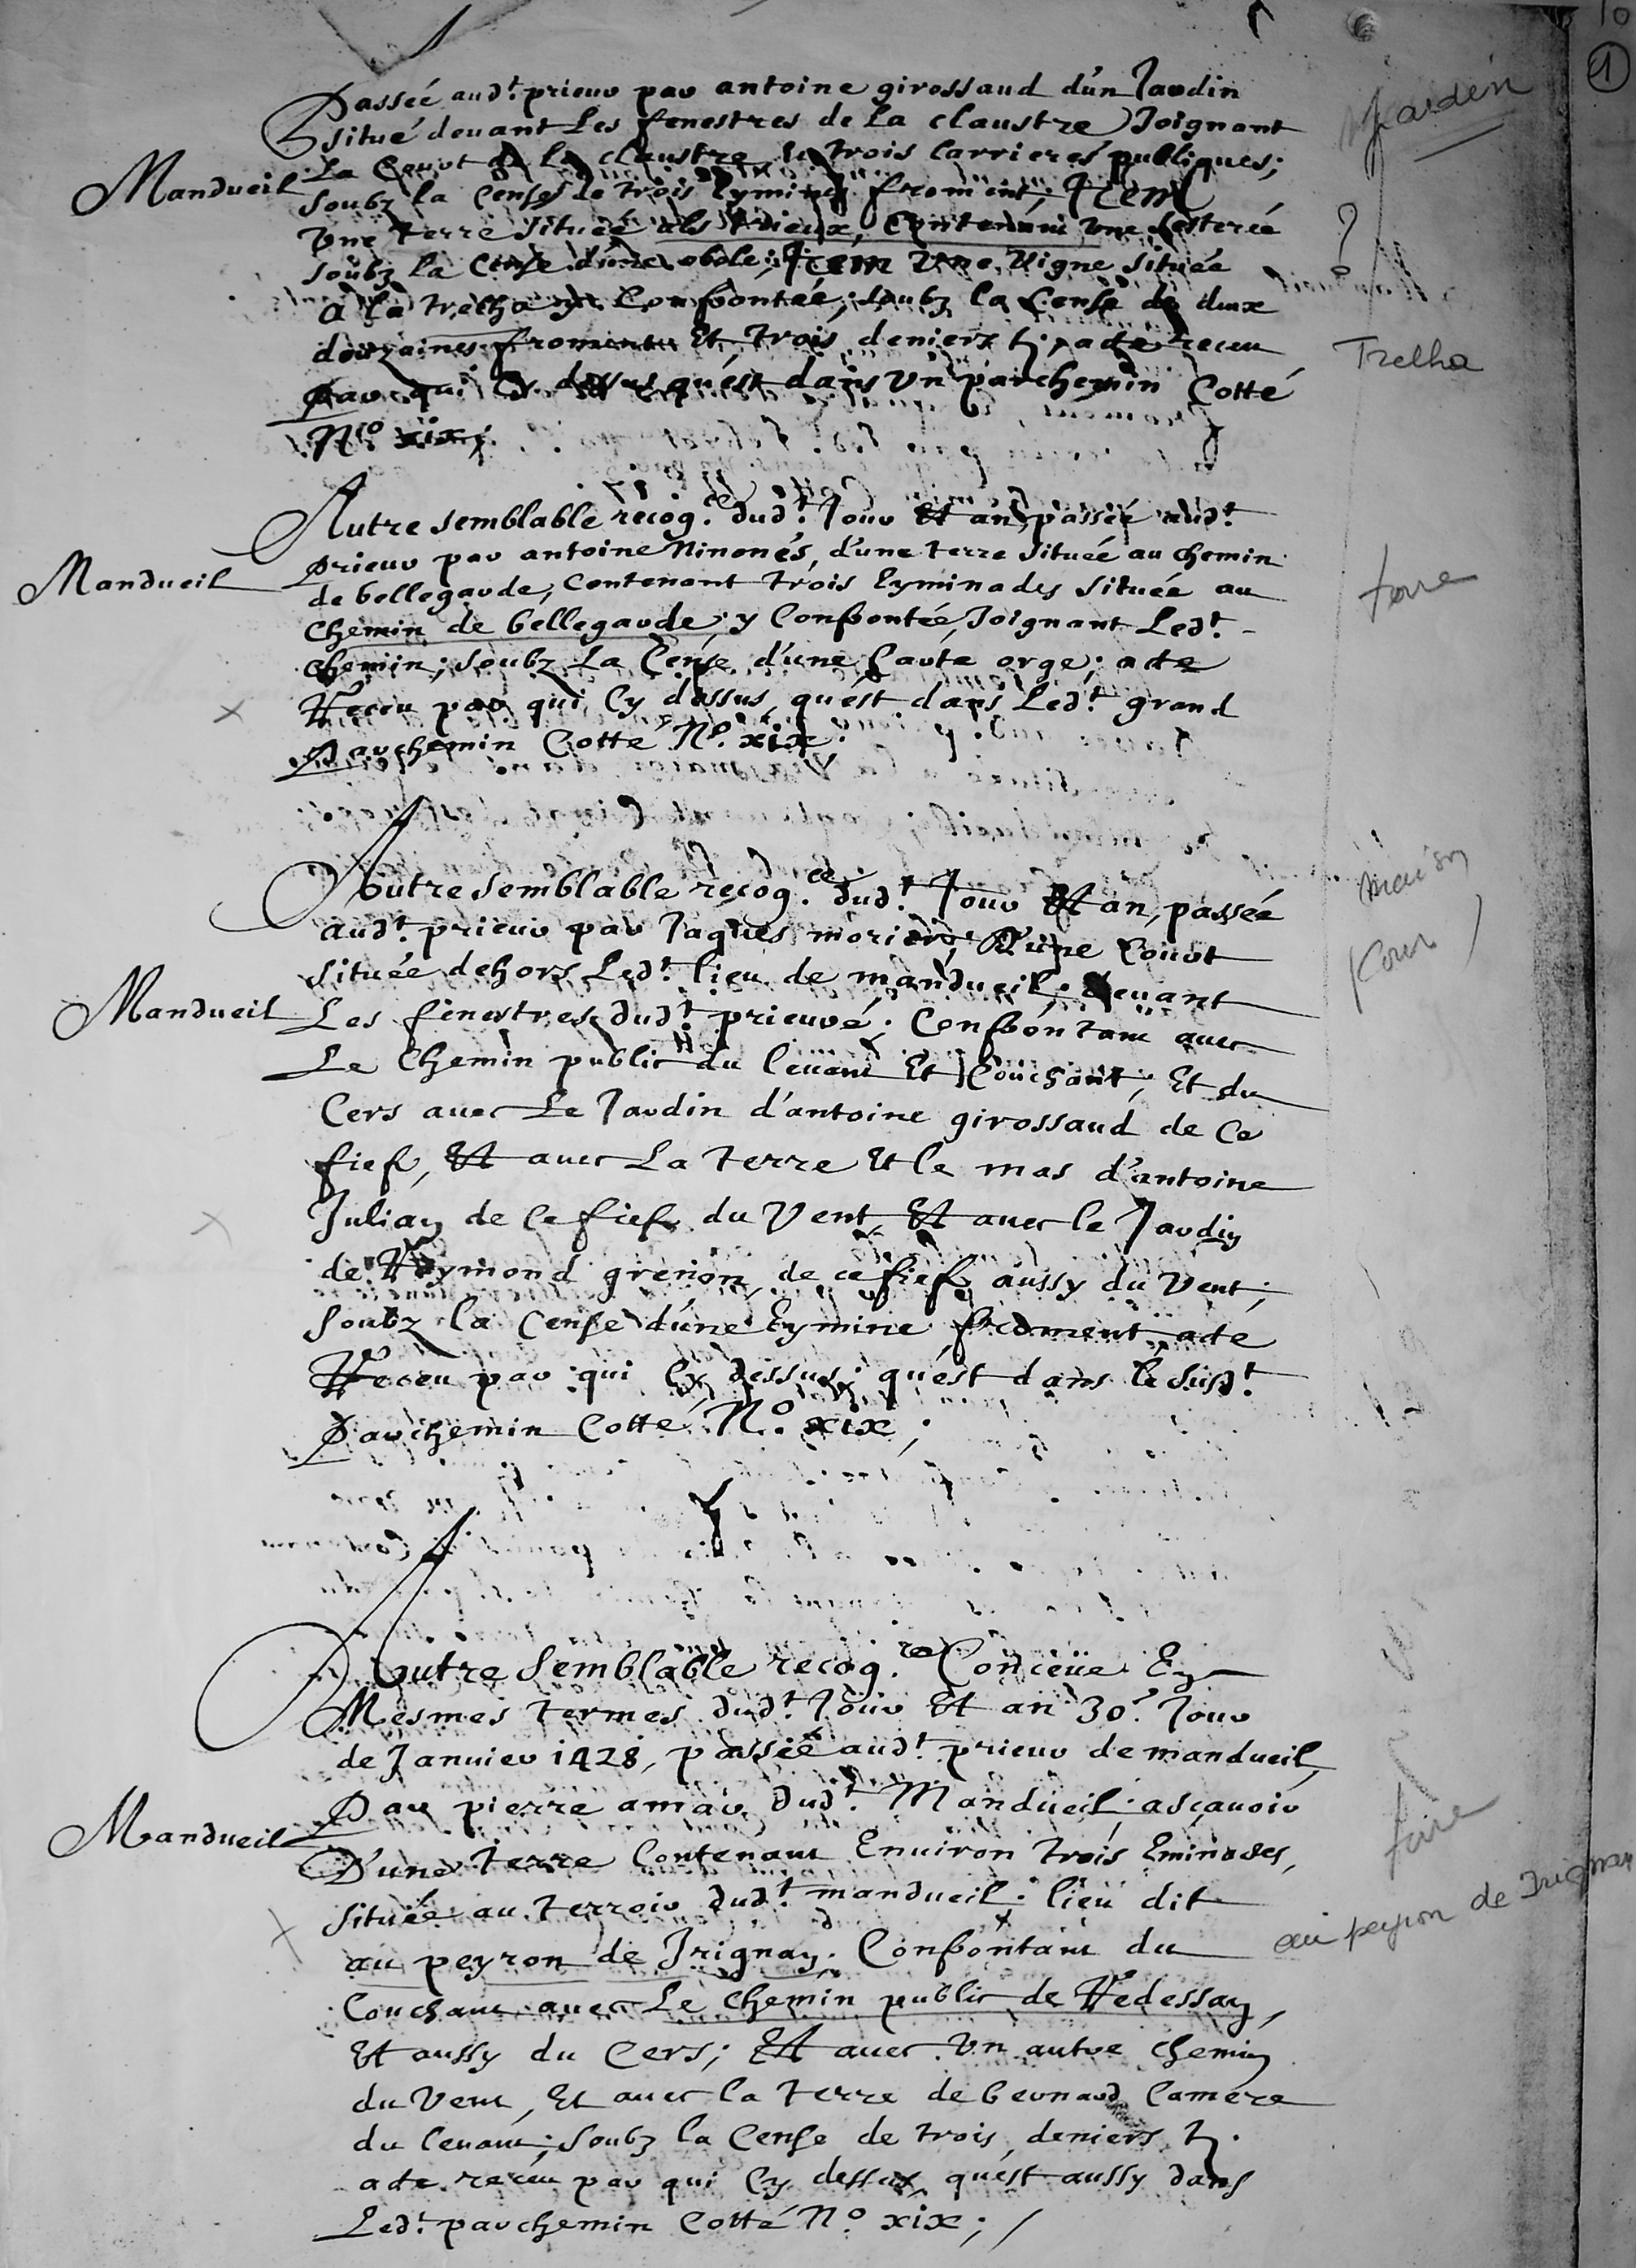 10
1
Passée aud.t prieur par antoine girossaud d'un Jardin
situé devant Les fenestres de la claustre Joignant
La Court de la claustre, et trois Carrieres publiques;
Mandueil
soubz la Cense de trois Eymines froment; Item
Une terre située als trieux, Contenant une sesterée
soubz la Cense d'une obole; Item Une Vigne située
a la trelha y Confrontée; soubz la Cense de deux
douzaines froment Et trois deniers t; acte receu
par qui Cy dessus qu'est dans Un parchemin Cotté
N.o xix;
Jardin
?
Trelha
Autre semblable recog.ce dud.t Jour Et an, passée aud.t
prieur par antoine Ninonés, d'une terre située au chemin
Mandueil
de bellegarde, Contenant trois Eyminades située au
Chemin de bellegarde; y Confrontée, Joignant Led.t
chemin; soubz La Cense d'une Carte orge; acte
Receu par qui Cy dessus, qu'est dans Led.t grand
parchemin Cotté N.o xix.
terre
Autre semblable recog.ce dud.t Jour Et an, passée
aud.t prieur par Jaques moriers, d'une Court
située dehors Led.t lieu de mandueil; devant
Mandueil
Les fenestres dud.t prieuré; Confrontant avec
Le Chemin public du levant Et Couchant; Et du
Cers avec Le Jardin d'antoine girossaud de Ce
fief, Et avec La terre Et le mas d'antoine
Julian de Ce fief du Vent, Et avec le Jardin
de Reymond grenon, de ce fief aussy du Vent;
soubz la Cense d'une Eymine froment, acte
Receu par qui Cy dessus; qu'est dans le susd.t
parchemin Cotté N.o xix;
maison
Cour
Autre semblable recog.ce Conceüe En
Mesmes termes dud.t Jour Et an 30.e Jour
de Janvier 1428, passée aud.t prieur de mandueil,
Par pierre amar dud.t Mandueil; asçavoir
Mandueil
D'une terre Contenant Environ trois Eminades,
située au terroir dud.t mandueil; lieu dit
au peyron de Jrignan. Confrontant du
Couchant avec Le chemin public de Redessan,
Et aussy du Cers; Et avec Un autre chemin
du Vent, Et avec la terre de bernard Camere
du levant; soubz la Cense de trois deniers t.
acte receu par qui Cy dessus, qu'est aussy dans
Led.t parchemin Cotté N.o xix; /
terre
au peyron de Jrignan